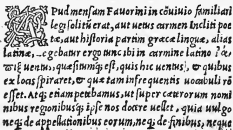 APud mensam Fauorini in cōuiuio familiari
legi solitū erat, aut uetus carmen lyrici poe
tæ, aut historia partim græcæ linguæ, alias
latinæ. Legebatur ergo tunc ibi in carmine latino
uentus, quæsitumq; est, quis hic uentus, & quibus
ex locis spiraret, & quæ tam infrequentis uocabuli rō
esset. Atq; etiam petebamus, ut super cæterorum nomi
nibus regionibusq; is se nos docere uellet, quia uulgo
neq; de appellationibus eorum, neq; de finibus, neque